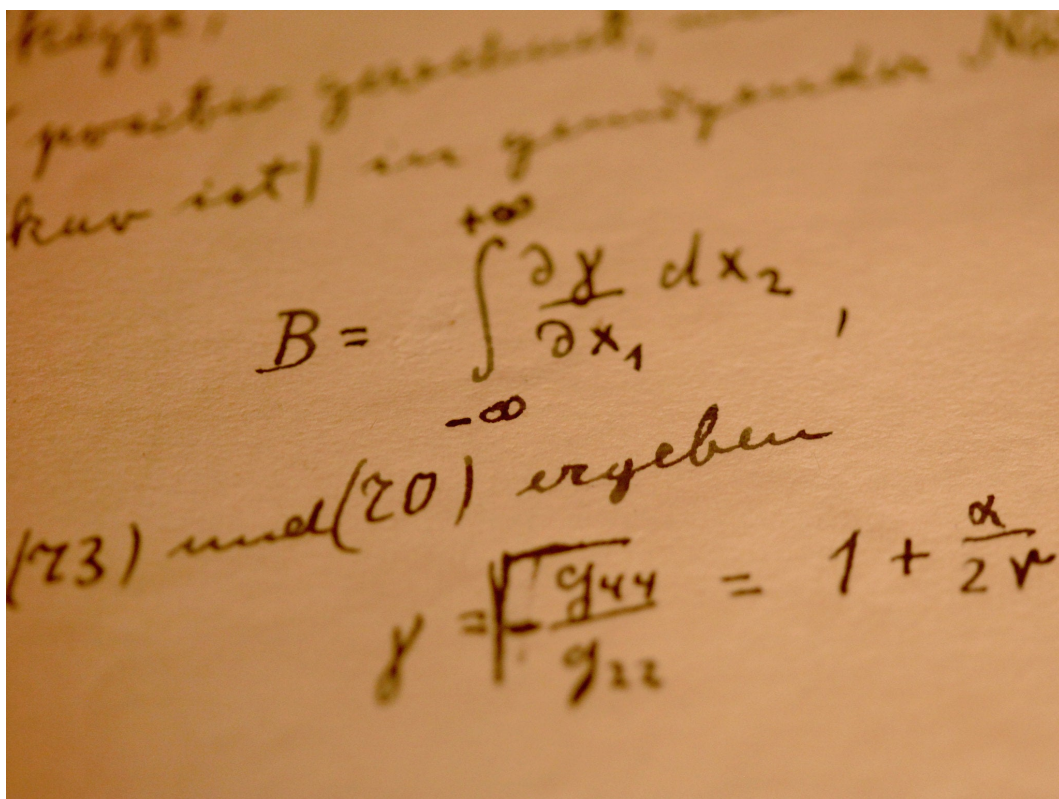 positiv gerechnet,
kav ist) in genügender
B = ∫_{-∞}^{+∞} ∂γ/∂x₁ dx₂ ,
(73) und (70) ergeben
γ = √(- g₄₄/g₂₂) = 1 + α/2r